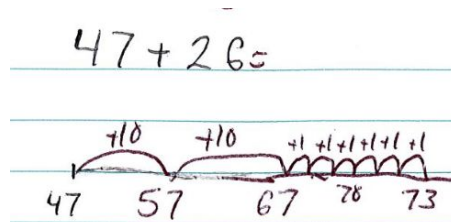 47 + 26=
+10 +10 +1 +1 +1 +1 +1 +1
47 57 67 70 73